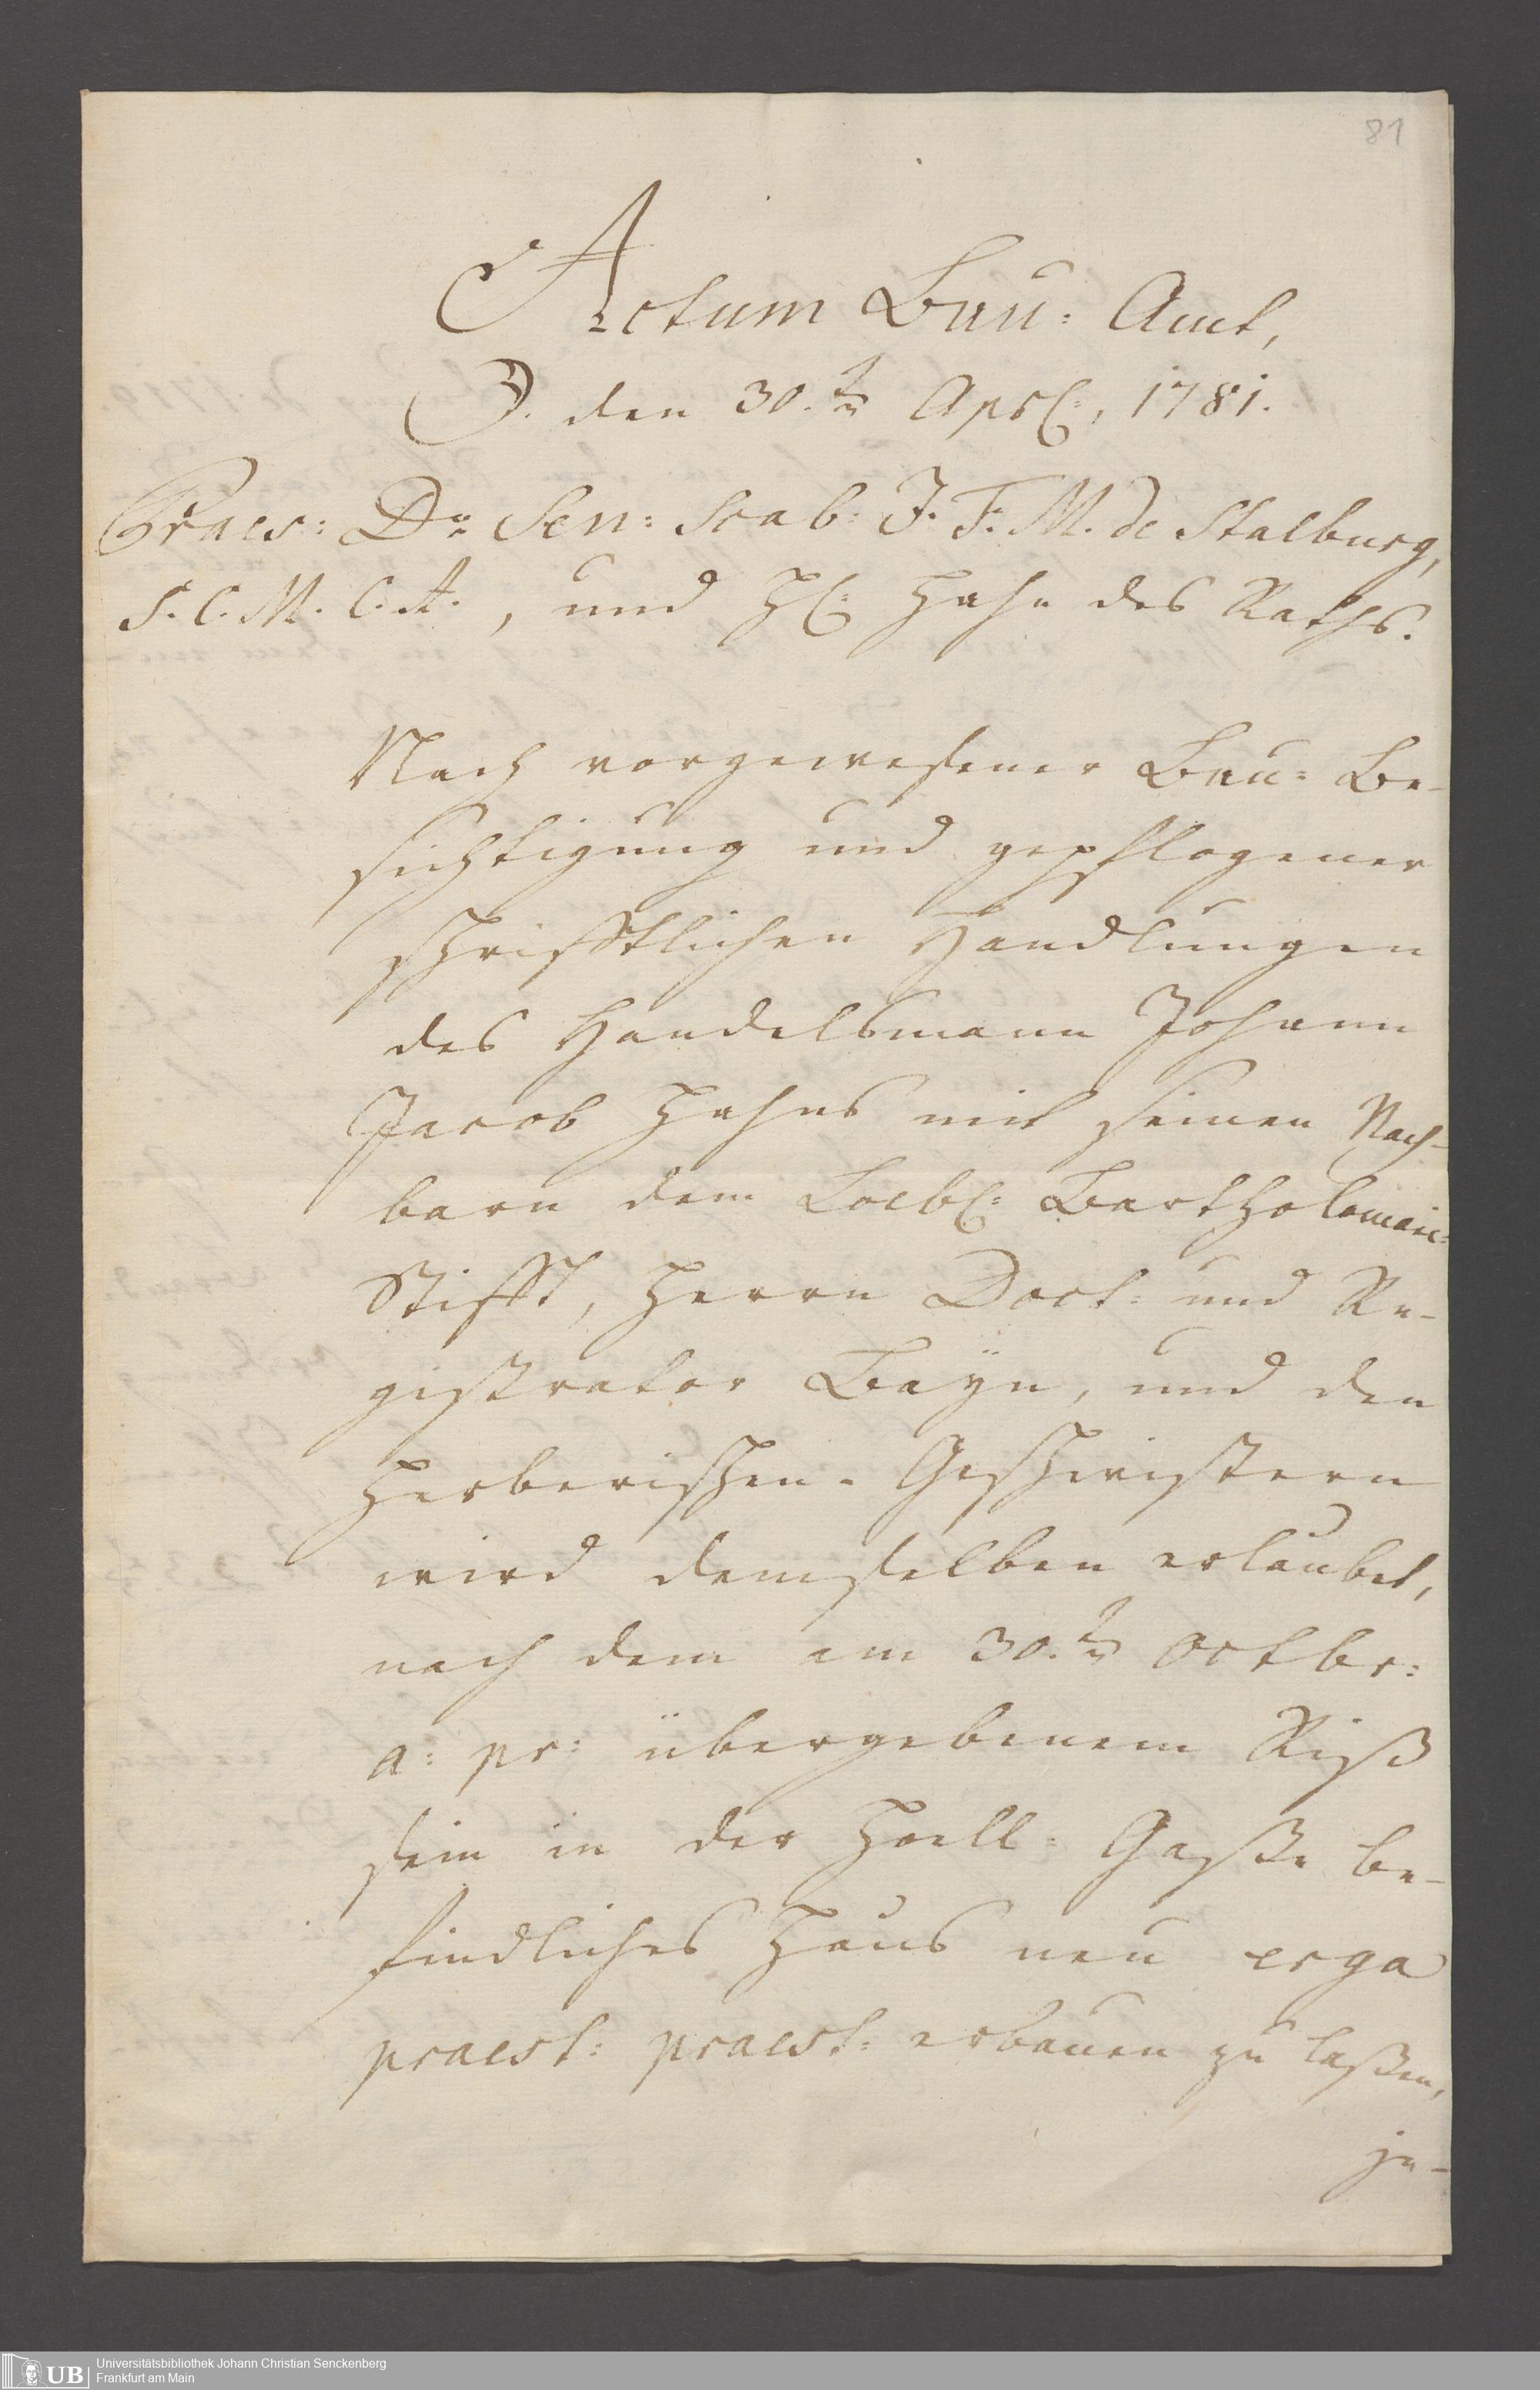 81
Actum Bau: Amt,
D. den 30.ten Apr:, 1781.
Praes: Do Sen: Scab: J. F. M. de Stalburg,
S. C. M. C. A., und H: Hahn des Raths.
Nach vorgewesener Bau: Be-
sichtigung und gepflogener
schrifftlichen Handlungen
des Handelsmann Johann
Jacob Hahns mit seinen Nach-
barn dem Loebl: Bartholomaei-
Stifft, Herrn Doct: und Re-
gistrator Bayn, und den
Herberischen-Geschwistern
wird demselben erlaubet,
nach dem am 30.ten Octbr:
a: pr: übergebenem Riß
sein in der Hoell: Gaße be-
findliches Haus neu erga
praest: praest: erbauen zu laßen,
je-
UB
Universitätsbibliothek Johann Christian Senckenberg
Frankfurt am Main